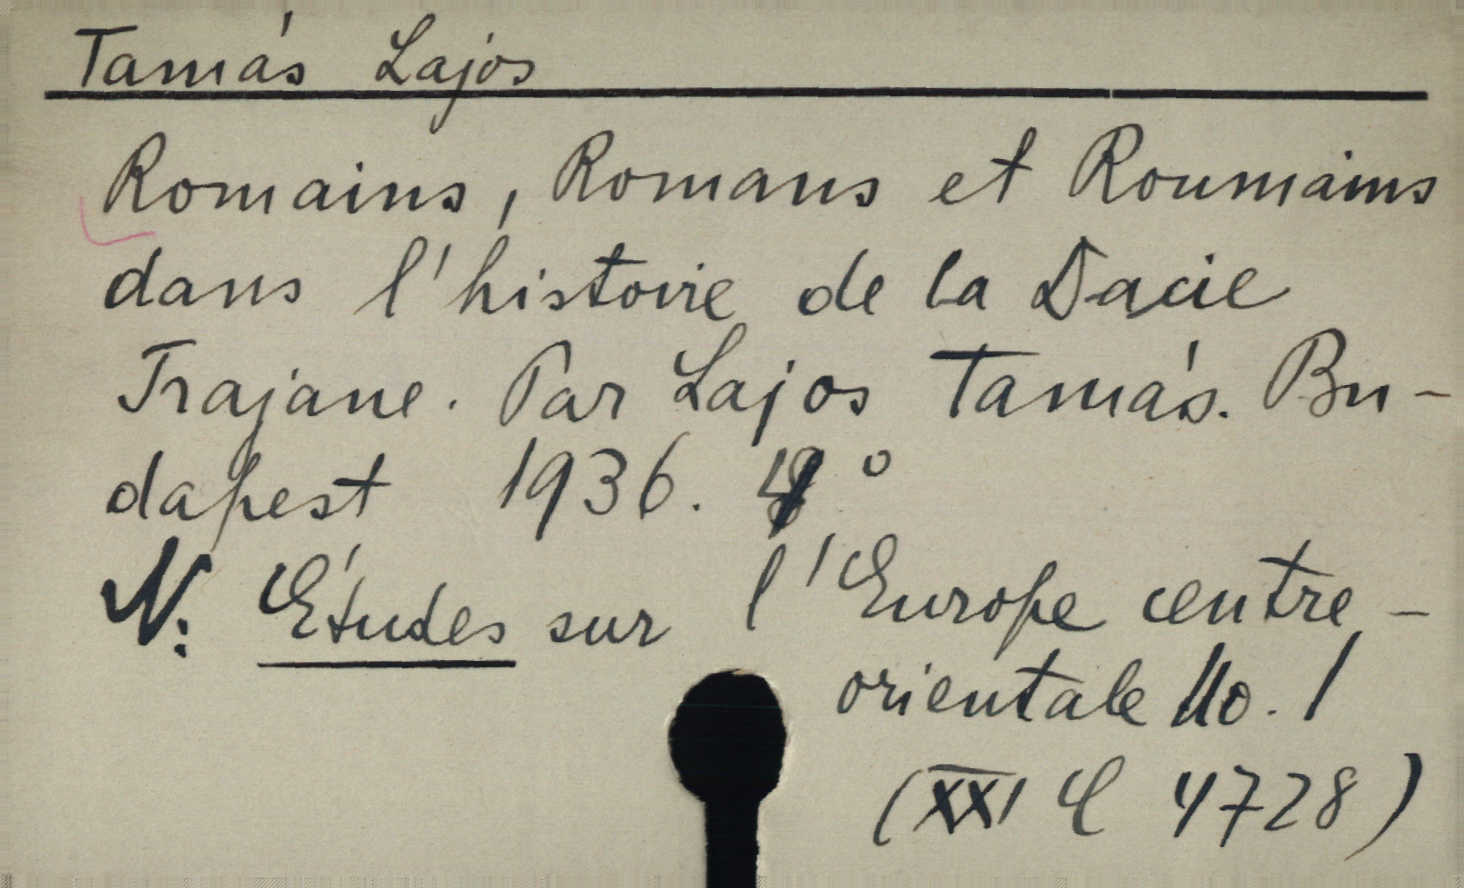 Tamás Lajos
Romains, Romans et Roumains
dans l'histoire de la Dacie
Trajane. Par Lajos Tamás. Bu-
dapest 1936. °
N: Études sur l'Europe centre-
orientale No. 1
(XXI C 4728)